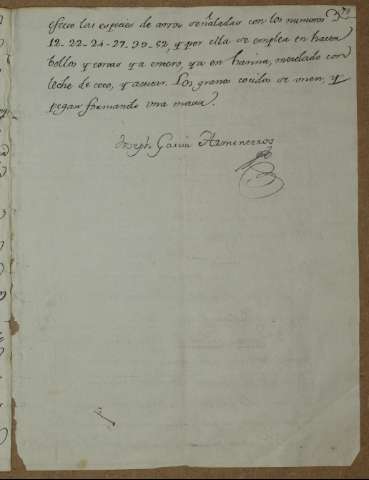 efecto las especies de arroz señaladas con los numeros
12-22-24-27-39-52, y por ella se emplea en hacer
bollos y ya entero, ya en harina, mezclado con
leche de coco, y azucar. Los granos cocidos se unen, y
pegan formando una masa.
Joseph Garcia Armenteros